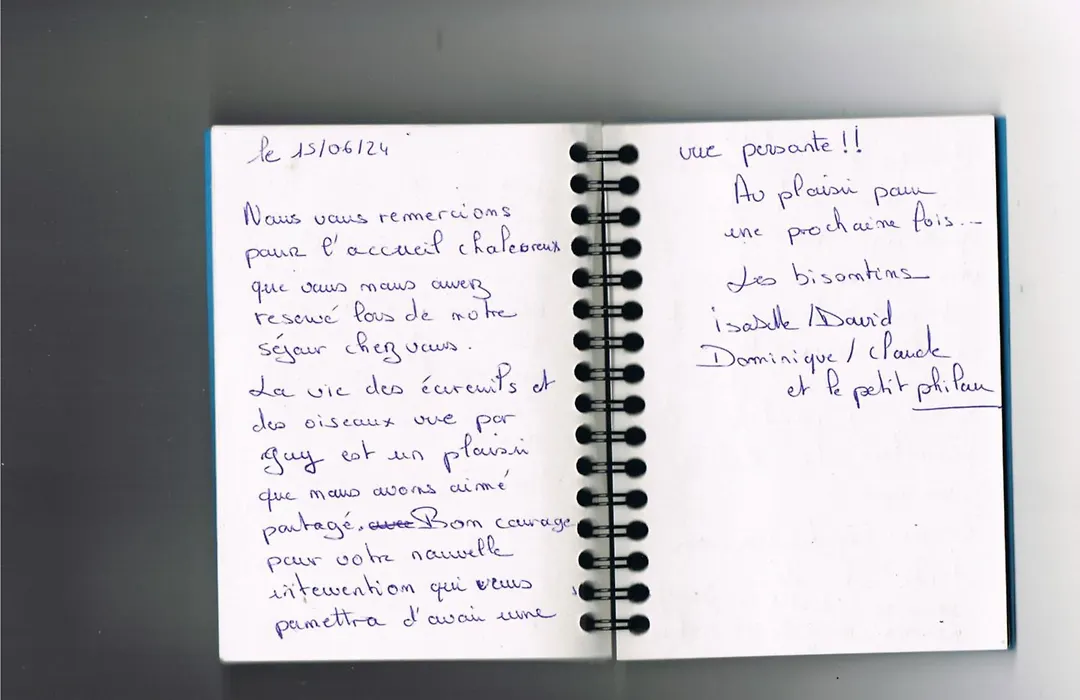 le 15/06/24
Nous vous remercions
pour l'accueil chaleureux
que vous nous avez
reservé lors de notre
séjour chez vous.
La vie des écureuils et
des oiseaux vue par
Guy est un plaisir
que nous avons aimé
partagé. avec Bon courage
pour votre nouvelle
intervention qui vous
permettra d'avoir une
vue persante !!
Au plaisir pour
une prochaine fois...
Les bisontins
isabelle / David
Dominique / Claude
et le petit philou